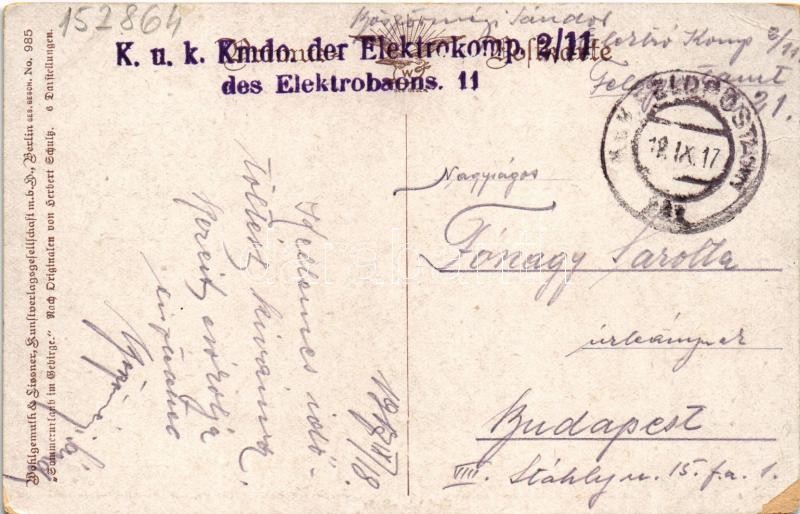 152864
K. u. k. Kmdo. der Elektrokomp. 2/11
des Elektrobaons. 11
Postkarte
Böszörményi Sándor
Elektró Komp 2/11
21.
K.u.K. FELDPOSTAMT
19. IX. 17
Nagyságos
Fónagy Sarolta
úrleánynak
Budapest
VIII. Stáhly u. 15. f. a. 1.
1917 IX/18
Kellemes idő-
töltést kívánva
kezeit csókolja
Wohlgemuth & Lissner, Kunstverlagsgesellschaft m.b.H., Berlin GES. GESCH. No. 985
"Sommerurlaub im Gebirge." Nach Originalen von Herbert Schultz. 6 Darstellungen.